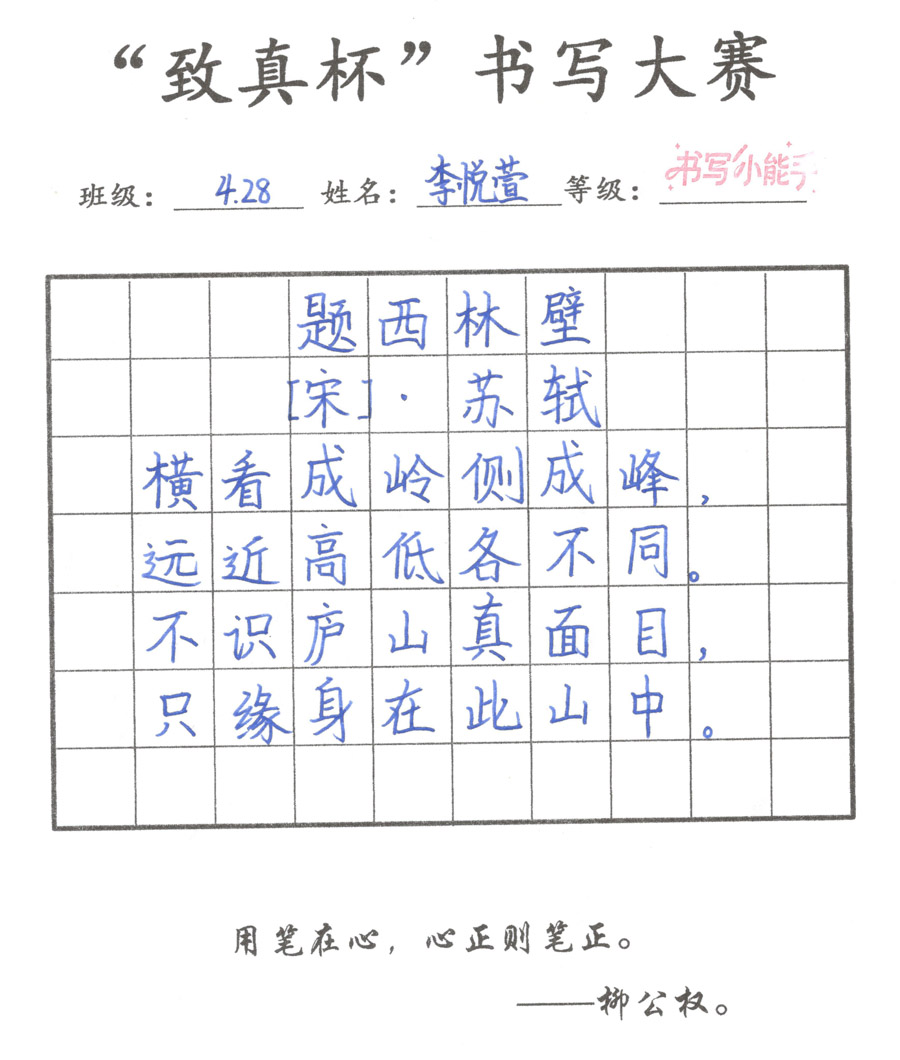 “致真杯”书写大赛
班级：4.28 姓名：李悦萱 等级：书写小能手
题西林壁
[宋]·苏轼
横看成岭侧成峰，
远近高低各不同。
不识庐山真面目，
只缘身在此山中。
用笔在心，心正则笔正。
——柳公权。